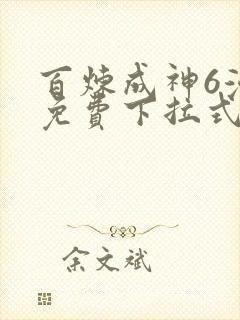 百炼成神6
免費下拉式
余文斌